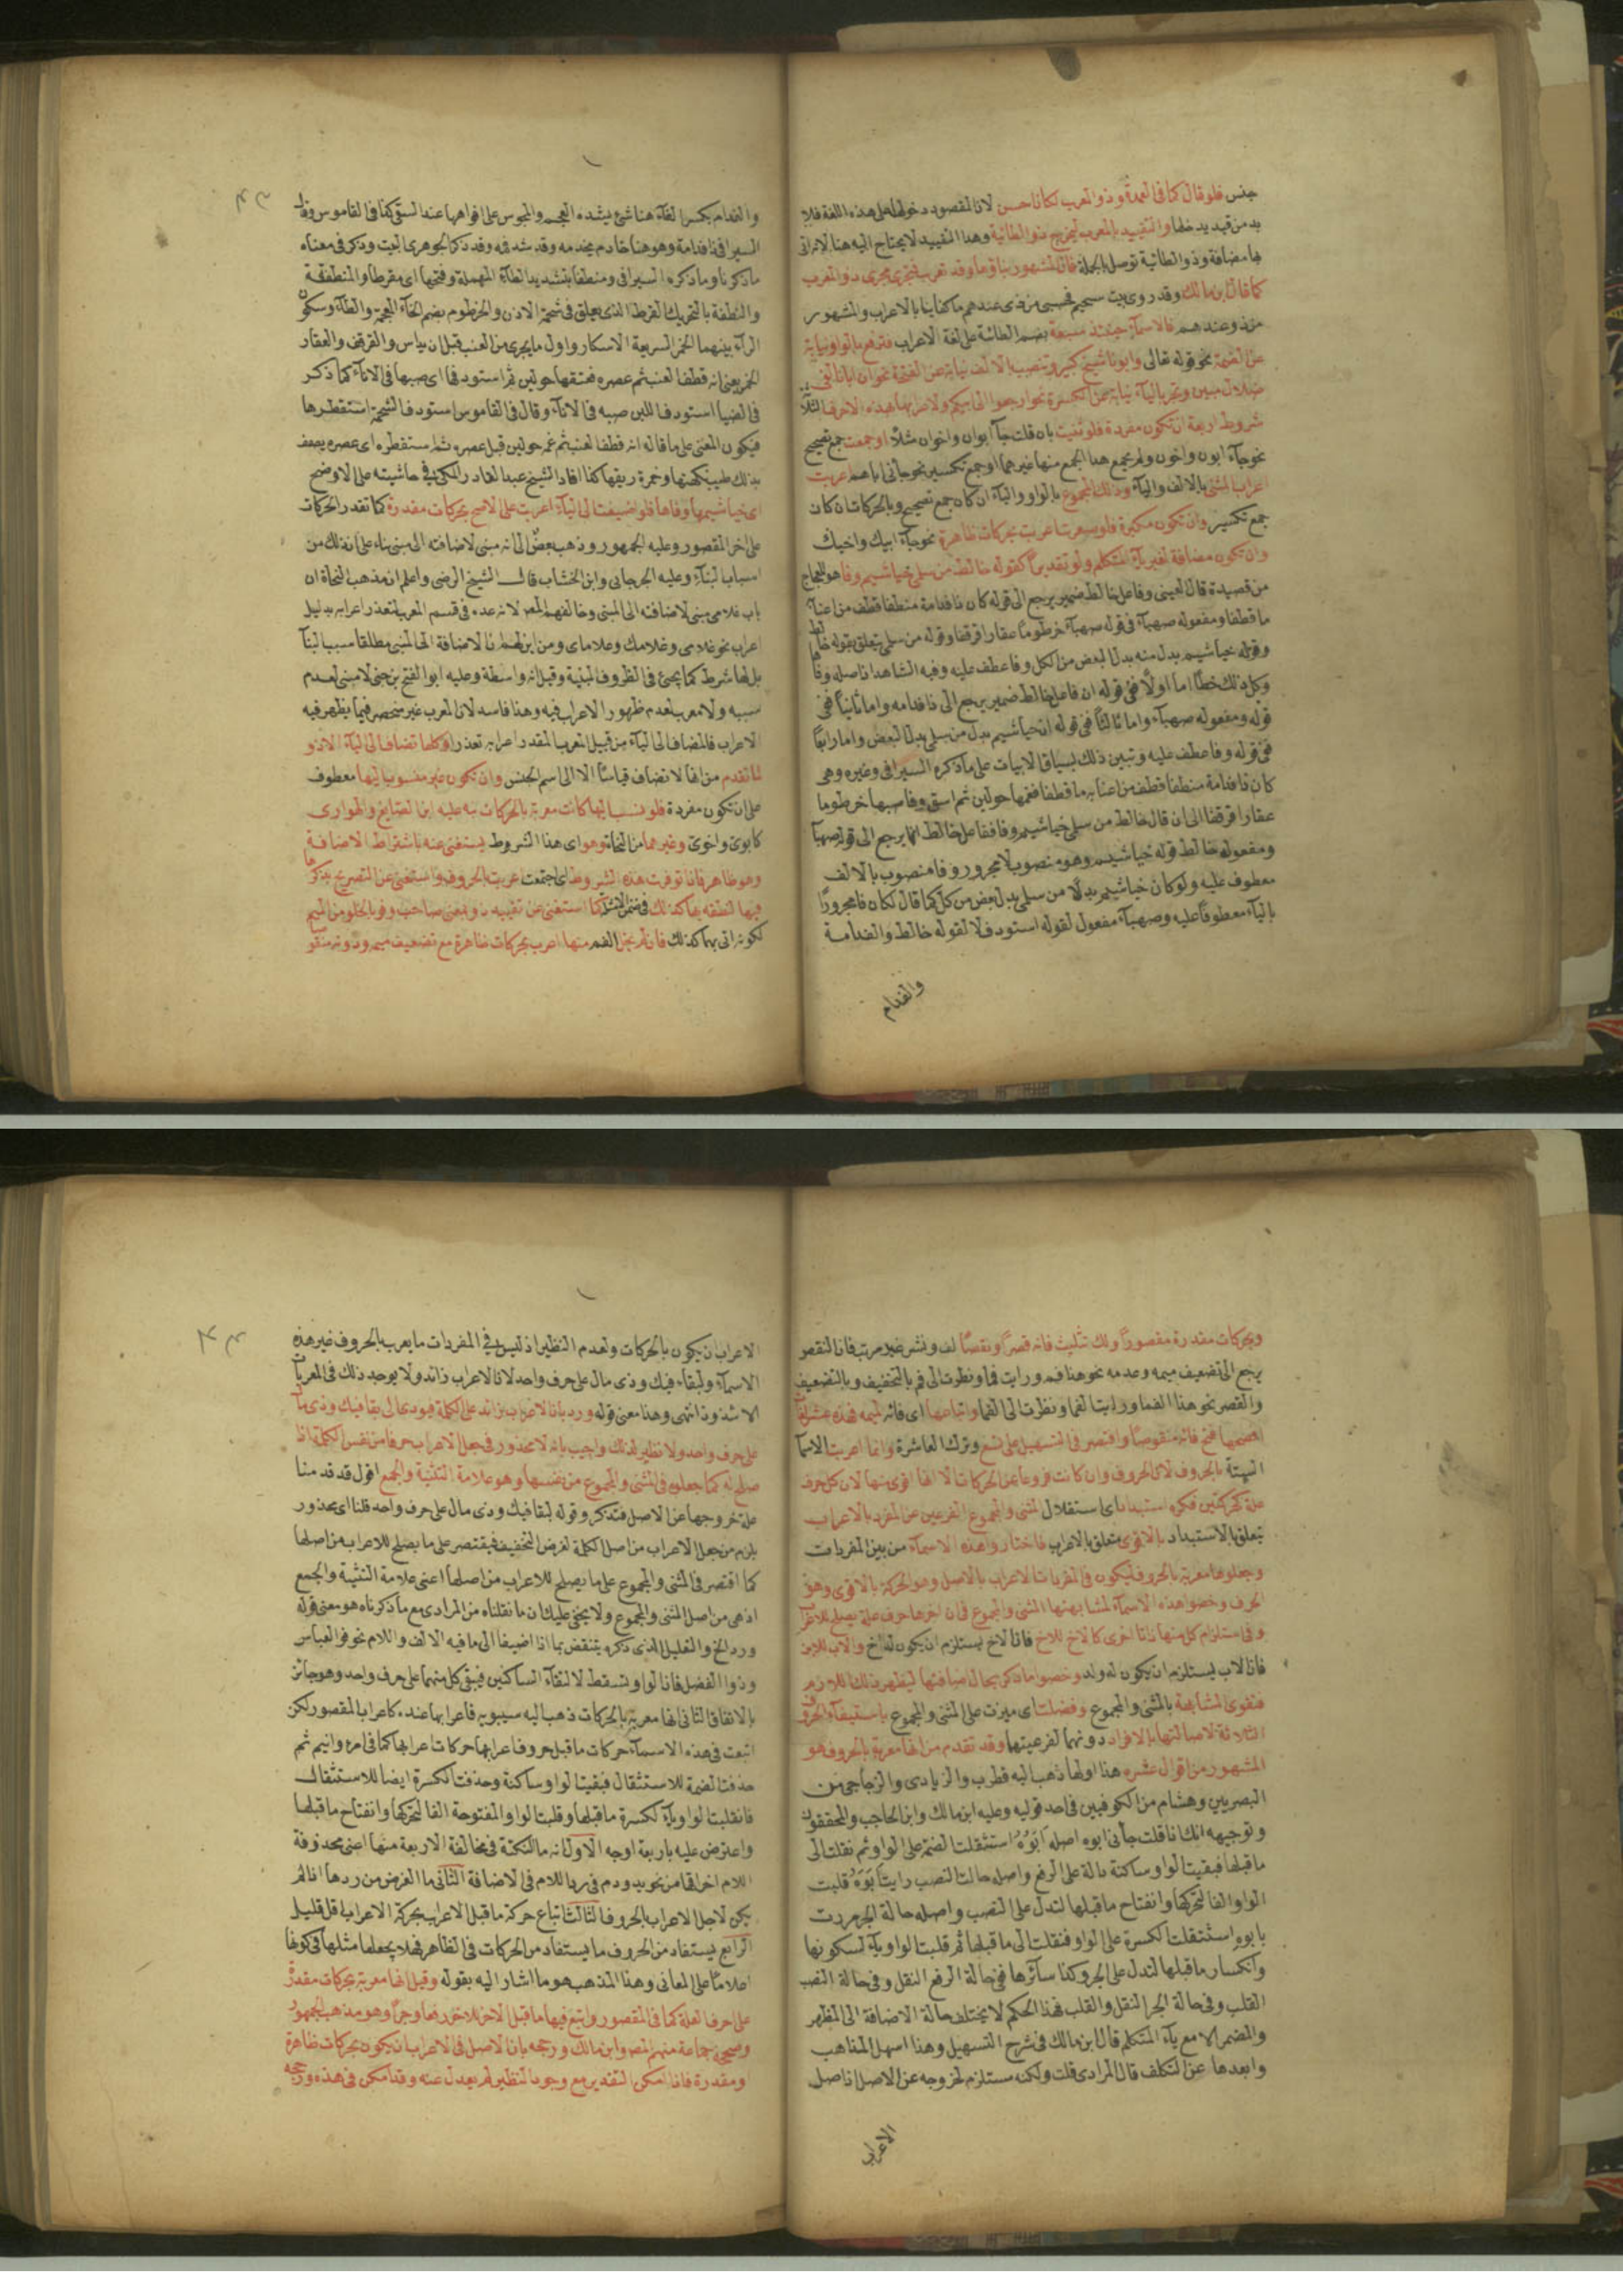 جنس فلو قال كما في العمدة وذو المعرب لكان احسن لان المقصود دخولها على هذه اللغة فلا
بد من قيد يدخلها والتقييد بالمعرب ليخرج ذو الطائية وهذا التقييد لا يحتاج اليه هنا لان
مضافة وذو الطائية توصل بالجملة فان المشهور بناؤها وقد تعرب فتجرى مجرى ذو المعرب
كما قال ابن مالك وقد روى بيت سحيم فحسبى من ذى عندهم ما كفانيا بالاعراب والمشهور
من ذو عندهم فالاسماء حينئذ سبعة بضم الطائية على لغة الاعراب فترفع بالواو نيابة
عن الضمة نحو قوله تعالى وابونا شيخ كبير وتنصب بالالف نيابة عن الفتحة نحو ان ابانا لفى
ضلال مبين وتجر بالياء نيابة عن الكسرة نحو ارجعوا الى ابيكم ولاعرابها بهذه الاحرف الثلاثة
شروط اربعة ان تكون مفردة فلو ثنيت بان قلت جاء ابوان واخوان مثلا او جمعت جمع تصحيح
نحو جاء ابون واخون ولم يجمع هذا الجمع منها غيرهما او جمع تكسير نحو جاءنى اباهم اعربت
اعراب المثنى بالالف والياء وذلك المجموع بالواو والياء ان كان جمع تصحيح وبالحركات ان كان
جمع تكسير وان تكون مكبرة فلو صغرت اعربت بحركات ظاهرة نحو جاء ابيك واخيك
وان تكون مضافة لغير ياء المتكلم ولو تقديرا كقوله خالط من سلمى خياشيم وفا هو للعجاج
من قصيدة قال العينى وفاعل خالط ضمير يرجع الى قوله كان ذا فدامة منطفا قطف من اعنابه
ما قطفا ومفعوله صهباء فى قوله صهباء خرطوما عقارا قرقفا وقوله من سلمى يتعلق بقوله خالط
وقوله خياشيم بدل منه بدل البعض من الكل وفا عطف عليه وفيه الشاهد اذ اصله وفاها
وكل ذلك خطأ اما اولا ففى قوله ان فاعل خالط ضمير يرجع الى ذا فدامه واما ثانيا ففى
قوله ومفعوله صهباء واما ثالثا ففى قوله ان خياشيم بدل من سلمى بدل البعض واما رابعا
ففى قوله وفا عطف عليه وتبين ذلك بسياق الابيات على ما ذكره السيرافى وغيره وهى
كان ذا فدامة منطفا قطف من اعنابه ما قطفا فغمها حولين ثم استودفا صهباء خرطوما
عقارا قرقفا الى ان قال خالط من سلمى خياشيم وفا ففاعل خالط انما يرجع الى قوله صهباء
ومفعوله خالط قوله خياشيم وهو منصوب لا مجرور وفا منصوب بالالف
معطوف عليه ولو كان خياشيم بدلا من سلمى بدل بعض من كل كما قال لكان فا مجرورا
بالياء معطوفا عليه وصهباء مفعول لقوله استودف لا لقوله خالط والفدامة
والفدام
٤٣
والفدام بكسر الفاء هنا شئ يشده العجم والمجوس على افواهها عند السقى كذا فى القاموس وقال
السيرافى ذا فدامة وهو هنا خادم يخدمه وقد شد فه وقد ذكر الجوهرى البيت وذكر فى معناه
ما ذكرنا وما ذكره السيرافى ومنطفا بتشديد الطاء المهملة وفتحها اى مقرطا والمنطفة
والنطفة بالتحريك القرط الذى يعلق فى شحمة الاذن والخرطوم بضم الخاء المعجمة والطاء وسكون
الراء بينهما الخمر السريعة الاسكار واول ما يجرى من العنب قبل ان يداس والقرقف والعقار
الخمر يعنى انه قطف العنب ثم عصره فعتقها حولين ثم استودفها اى صبها فى الاناء كما ذكر
فى الضيا استودف اللبن صبه فى الاناء وقال فى القاموس استودف الشحمة استقطرها
فيكون المعنى على ما قاله انه قطف العنب ثم غمه حولين قبل عصره ثم استقطره اى عصره يصف
بذلك طيب نكهتها وخمرة ريقها كذا افاد الشيخ عبد القادر المكى فى حاشيته على الاوضح
اى خياشيمها وفاها فلو اضيفت الى الياء اعربت على الاصح بحركات مقدرة كما تقدر الحركات
على اخر المقصور وعليه الجمهور وذهب بعض الى انه مبنى لاضافته الى مبنى بناء على ان ذلك من
اسباب البناء وعليه الجرجانى وابن الخشاب قال الشيخ الرضى واعلم ان مذهب النحاة ان
باب غلامى مبنى لاضافته الى المبنى وخالفهم المصـ لانه عده فى قسم المعرب لتعذر اعرابه بدليل
اعراب نحو غلامى وغلامك وغلاماى ومن اين لهم ان الاضافة الى المبنى مطلقا سبب البنا
بل لها شرط كما يجئ فى الظروف المبنية وقيل انه واسطة وعليه ابو الفتح بن جنى لا مبنى لعدم
سببه ولا معرب لعدم ظهور الاعراب فيه وهذا فاسد لان المعرب غير منحصر فيما يظهر فيه
الاعراب فالمضاف الى الياء من قبيل المعرب المقدر اعرابه تعذرا وكلها تضاف الى الياء الا ذو
لما تقدم من انها لا تضاف قياسا الا الى اسم الجنس وان تكون غير منسوب اليها معطوف
على ان تكون مفردة فلو نسب اليها كانت معربة بالحركات نبه عليه ابن الصايغ والهوارى
كابوى واخوى وغيرهما من النحاة وهو اى هذا الشروط يستغنى عنه باشتراط الاضافة
وهو ظاهر فاذا توفرت هذه الشروط اى اجتمعت اعربت بالحروف واستغنى عن التصريح بذكرها
فيها لنطقه بها كذلك فى ضمن الامثلة كما استغنى عن تقييد ذو بمعنى صاحب وفو بالخلو من الميم
لكونه اتى بهما كذلك فان لم يخل الفم منها اعرب بحركات ظاهرة مع تضعيف ميمه ودونه منقوصا
وبحركات مقدرة مقصورا ولك تثليث فائه قصرا ونقصا لف ونشر غير مرتب فان النقص
يرجع الى تضعيف ميمه وعدمه نحو هذا فم ورايت فما ونظرت الى فم بالتخفيف وبالتضعيف
والقصر نحو هذا الفما ورايت الفما ونظرت الى الفما واتباعها اى فائه لميمه فهذه عشر لغات
افصحها فتح فائه منقوصا واقتصر فى التسهيل على تسع وترك العاشرة وانما اعربت الاسما
الستة بالحروف لان الحروف وان كانت فروعا عن الحركات الا انها اقوى منها لان كل حرف
علة كحركتين فكره استبداد اى استقلال المثنى والمجموع الفرعين عن المفرد بالاعراب
يتعلق بالاستبداد بالاقوى متعلق بالاعراب فاختاروا هذه الاسماء من بين المفردات
وجعلوها معربة بالحروف ليكون فى المفردات الاعراب بالاصل وهو الحركة بالاقوى وهو
الحرف وخصوا هذه الاسماء لمشابهتها المثنى والمجموع فى ان اخرها حرف علة يصلح للاعراب
وفى استلزام كل منها ذاتا اخرى كالاخ للاخ فان الاخ يستلزم ان يكون له اخ والاب للابن
فان الاب يستلزم ان يكون له ولد وخصوا ما ذكر بحال اضافتها ليظهر ذلك اللازم
فتقوى المشابهة بالمثنى والمجموع وفضلت اى ميزت على المثنى والمجموع باستيفاء الحروف
الثلاثة لاصالتها بالافراد دونهما لفرعيتهما وقد تقدم من انها معربة بالحروف هو
المشهور من اقوال عشره هذا اولها ذهب اليه قطرب والزيادى والزجاجى من
البصريين وهشام من الكوفيين فى احد قوليه وعليه ابن مالك وابن الحاجب والمحققون
وتوجيهه انك اذا قلت جاءنى ابوه اصله اَبَوُهُ استثقلت الضمة على الواو ثم نقلت الى
ما قبلها فبقيت الواو ساكنة دالة على الرفع واصله حالت النصب رايت اَبَوَهُ قلبت
الواو الفا لتحركها وانفتاح ما قبلها لتدل على النصب واصله حالة الجر مررت
بابوِهِ استثقلت الكسرة على الواو فنقلت الى ما قبلها ثم قلبت الواو ياء لسكونها
وانكسار ما قبلها لتدل على الجر وكذا سائرها ففى حالة الرفع النقل وفى حالة النصب
القلب وفى حالة الجر النقل والقلب فهذا الحكم لا يختلف حالة الاضافة الى المظهر
والمضمر الا مع ياء المتكلم قال ابن مالك فى شرح التسهيل وهذا اسهل المذاهب
وابعدها عن التكلف قال المرادى قلت ولكنه مستلزم لخروجه عن الاصل اذ اصل
الاعراب
٤٤
الاعراب ان يكون بالحركات ولعدم النظير اذ ليس فى المفردات ما يعرب بالحروف غير هذه
الاسماء ولبقاء فيك وذى مال على حرف واحد لان الاعراب زائد ولا يوجد ذلك فى المعربات
الا شذوذا انتهى وهذا معنى قوله ورد بان الاعراب زائد على الكلمة فيودى الى بقا فيك وذى مال
على حرف واحد ولا نظير لذلك واجيب بانه لا محذور فى جعل الاعراب حرفا من نفس الكلمة اذا
صلح له كما جعلوه فى المثنى والمجموع من نفسها وهو علامة التثنية والجمع اقول قد قدمنا
علة خروجها عن الاصل فتذكر وقوله لبقا فيك وذى مال على حرف واحد قلنا اى محذور
يلزم من جعل الاعراب من اصل الكلمة لغرض التخفيف فيقتصر على ما يصلح للاعراب من اصلها
كما اقتصر فى المثنى والمجموع على ما يصلح للاعراب من اصلها اعنى علامة التثنية والجمع
اذ هى من اصل المثنى والمجموع ولا يخفى عليك ان ما نقلناه من المرادى مع ما ذكرناه هو معنى قوله
ورد الخ والتعليل الذى ذكره ينتقض بما اذا اضيفا الى ما فيه الالف واللام نحو فو العباس
وذوا الفضل فان الواو تسقط لالتقاء الساكنين فيبقى كل منهما على حرف واحد وهو جائز
بالاتفاق الثانى انها معربة بالحركات ذهب اليه سيبويه فاعرابها عنده كاعراب المقصور لكن
اتبعت فى هذه الاسماء حركات ما قبل حروف اعرابها حركات اعرابها كما فى امرء وابنم ثم
حذفت الضمة للاستثقال فبقيت الواو ساكنة وحذفت الكسرة ايضا للاستثقال
فانقلبت الواو ياء لكسرة ما قبلها وقلبت الواو المفتوحة الفا لتحركها وانفتاح ما قبلها
واعترض عليه باربعة اوجه الاول انه ما النكتة فى مخالفة الاربعة منها اعنى محذوفة
اللام اخواتها من نحو يد ودم فى رد اللام فى الاضافة الثانى ما الغرض من ردها اذا لم
يكن لاجل الاعراب بالحروف الثالث اتباع حركة ما قبل الاعراب بحركة الاعراب اقل قليل
الرابع يستفاد من الحروف ما يستفاد من الحركات فى الظاهر فهلا يجعلها مثلها فى كونها
اعلاما على المعانى وهذا المذهب هو ما اشار اليه بقوله وقيل انها معربة بحركات مقدرة
على حرف العلة كما فى المقصور واتبع فيها ما قبل الاخر للاخر رفعا وجرا وهو مذهب الجمهور
وصححه جماعة منهم المصـ وابن مالك ورجحه بان الاصل فى الاعراب ان يكون بحركات ظاهرة
ومقدرة فاذا امكن التقدير مع وجود النظير لم يعدل عنه وقد امكن فى هذه ورجحه